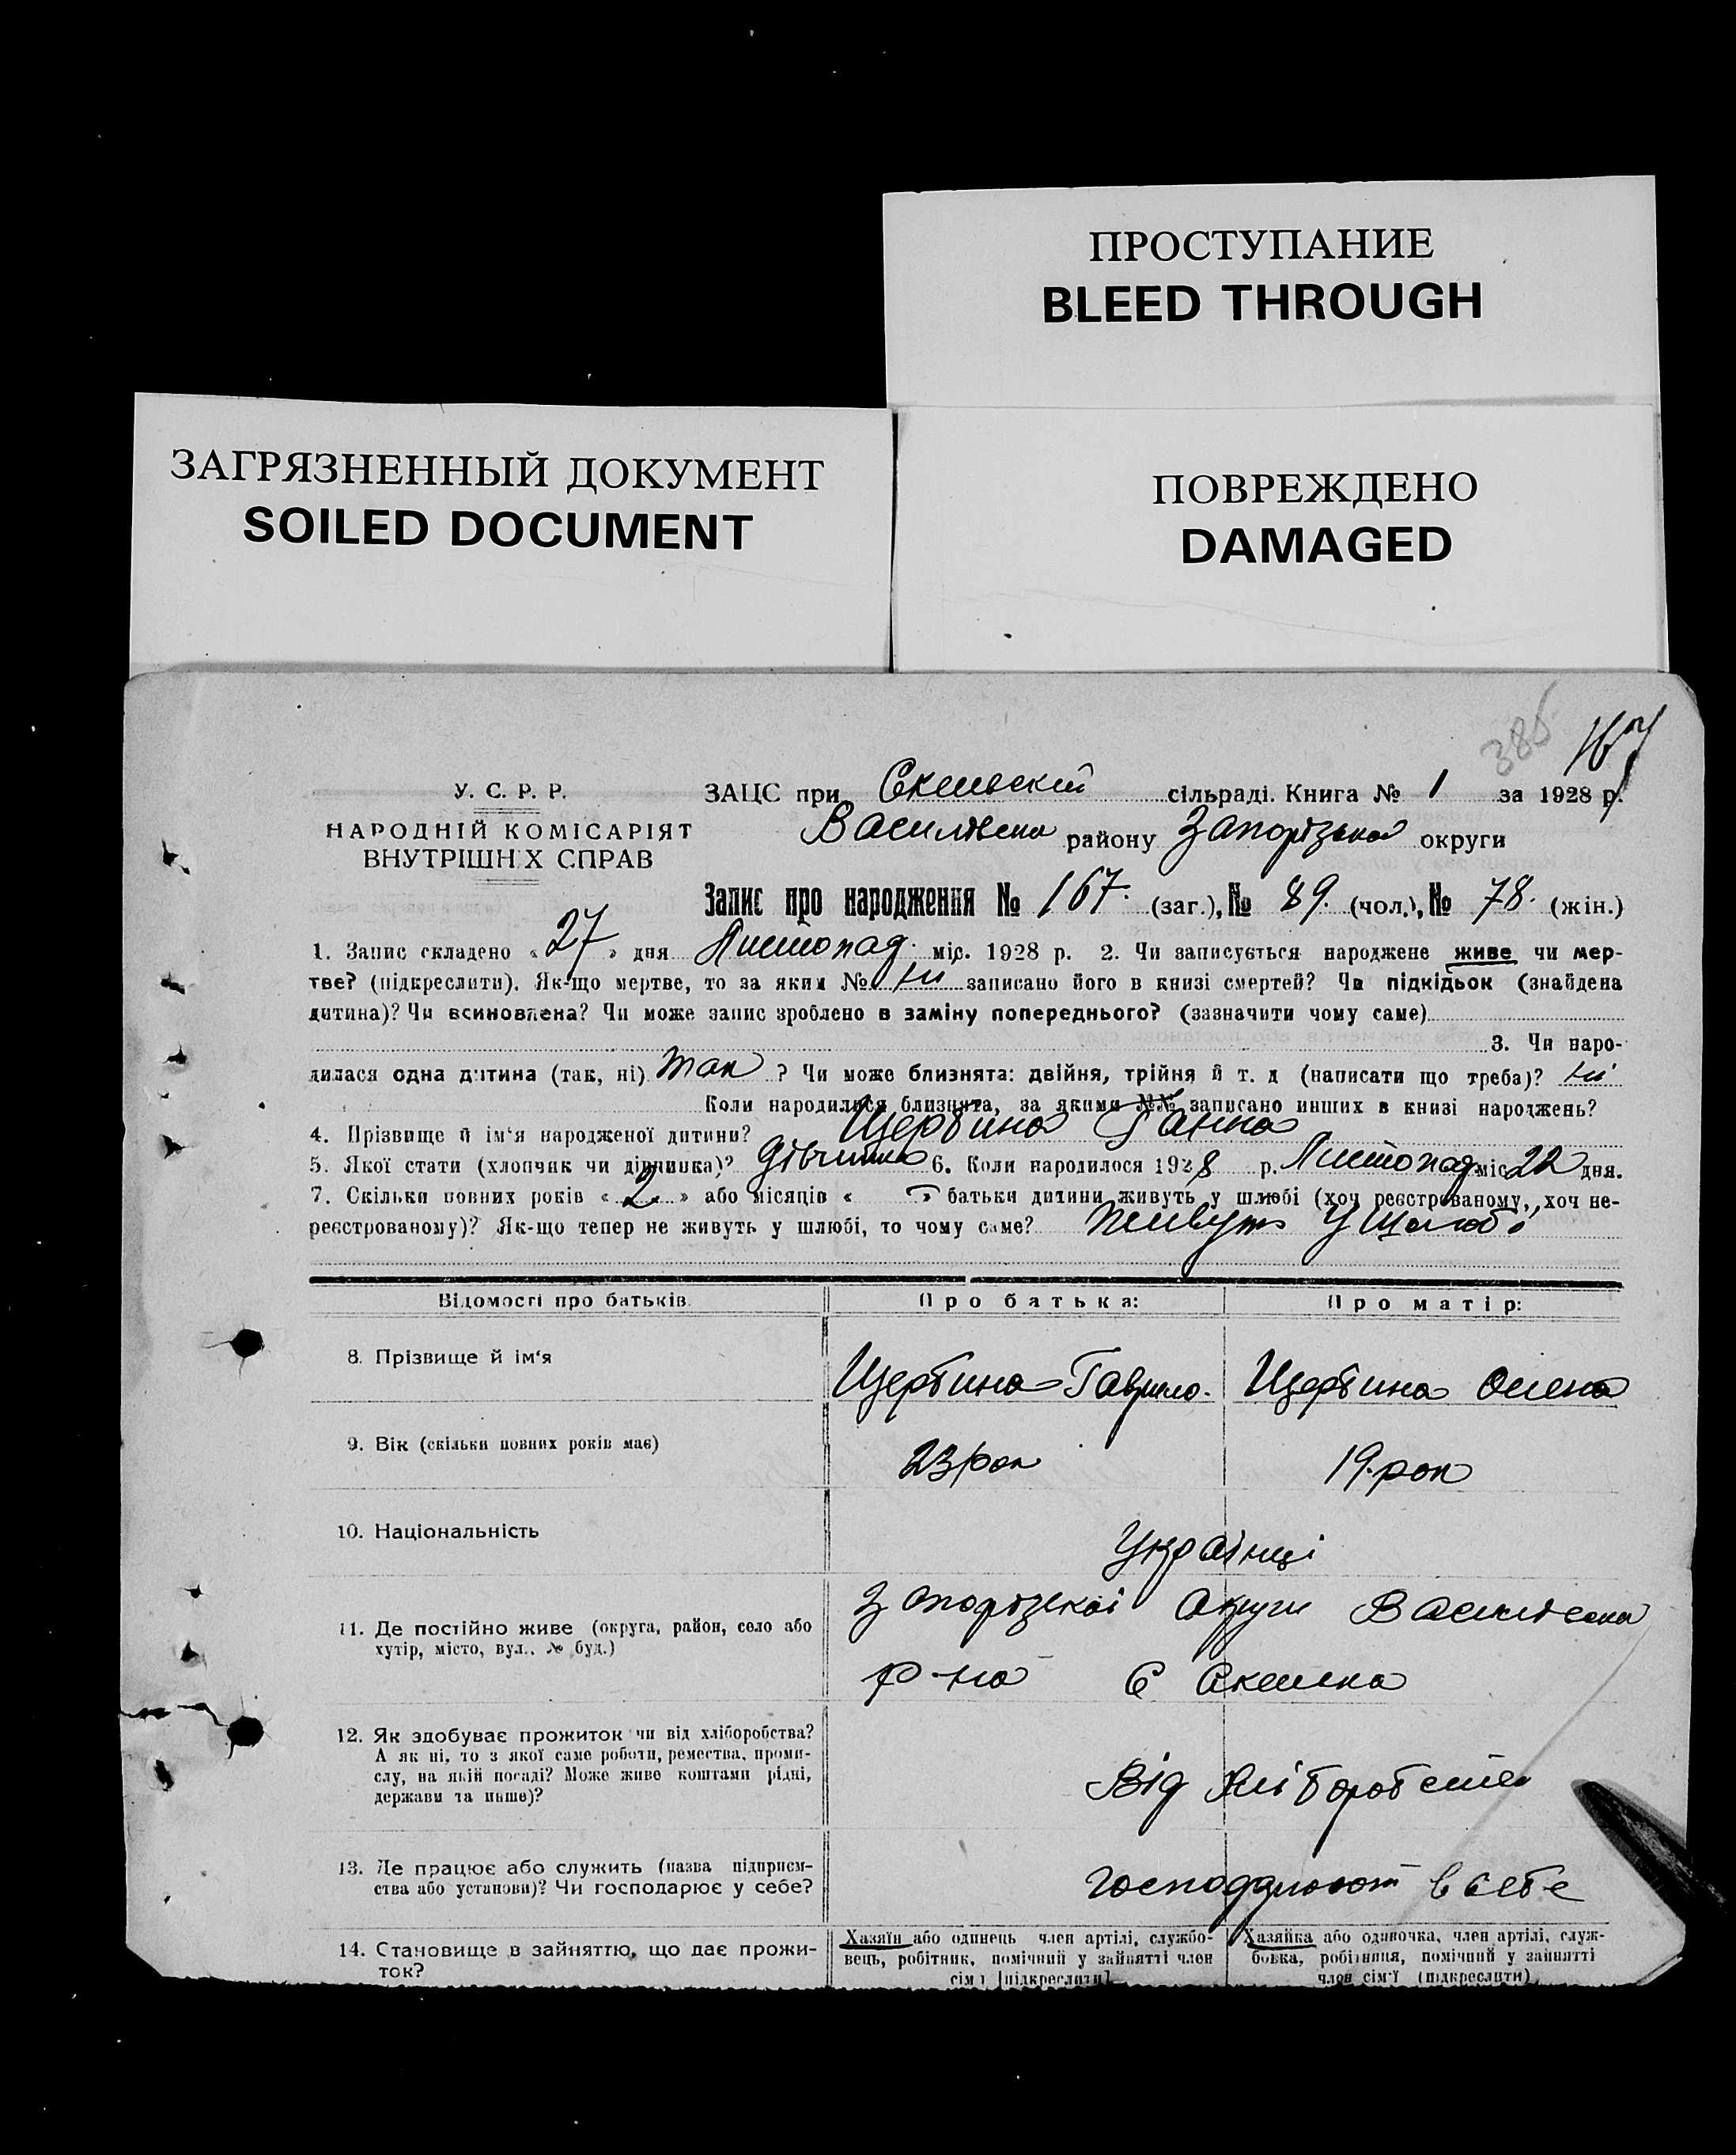 ПРОСТУПАНИЕ
BLEED THROUGH
ЗАГРЯЗНЕННЫЙ ДОКУМЕНТ
SOILED DOCUMENT
ПОВРЕЖДЕНО
DAMAGED
385 167
У. С. Р. Р.
НАРОДНІЙ КОМІСАРІЯТ
ВНУТРІШНІХ СПРАВ
ЗАЦС при Скельскій сільраді. Книга № 1 за 1928 р.
Василівська району Запорізька округи
Запис про народження № 167. (заг.), № 89. (чол.), № 78. (жін.)
1. Запис складено «27» дня Листопад міс. 1928 р. 2. Чи записується народжене живе чи мер-
тве? (підкреслити). Як-що мертве, то за яким № ні записано його в книзі смертей? Чи підкідьок (знайдена
дитина)? Чи всиновлена? Чи може запис зроблено в заміну попереднього? (зазначити чому саме)
3. Чи наро-
дилася одна дитина (так, ні) так ? Чи може близнята: двійня, трійня й т. д (написати що треба)? ні
Коли народилися близнята, за якими №№ записано инших в книзі народжень?
4. Прізвище й ім'я народженої дитини? Щербина Ганна
5. Якої стати (хлопчик чи дівчинка)? дівчинка 6. Коли народилося 1928 р. Листопад міс 22 дня.
7. Скільки повних років «2» або місяців « » батьки дитини живуть у шлюбі (хоч реєстрованому, хоч не-
реєстрованому)? Як-що тепер не живуть у шлюбі, то чому саме? Живуть у шлюбі
Відомості про батьків Про батька: Про матір:
8. Прізвище й ім'я Щербина Гаврило. Щербина Олена
9. Вік (скільки повних років має) 23 рок 19. рок
10. Національність Українці
11. Де постійно живе (округа, район, село або
хутір, місто, вул., № буд.)
Запорізскої Округи Василівська
р-на С Скелька
12. Як здобуває прожиток чи від хліборобства?
А як ні, то з якої саме роботи, ремества, проми-
слу, на якій посаді? Може живе коштами рідні,
держави та инше)?
Від Хліборобства
13. Де працює або служить (назва підприєм-
ства або установи)? Чи господарює у себе?
господарюют в себе
14. Становище в зайняттю, що дає прожи-
ток?
Хазяїн або одинець член артілі, службо-
вець, робітник, помічний у зайнятті член
сім'ї [підкреслити]
Хазяйка або одиночка, член артілі, служ-
бовка, робітниця, помічний у зайнятті
член сім'ї (підкреслити)